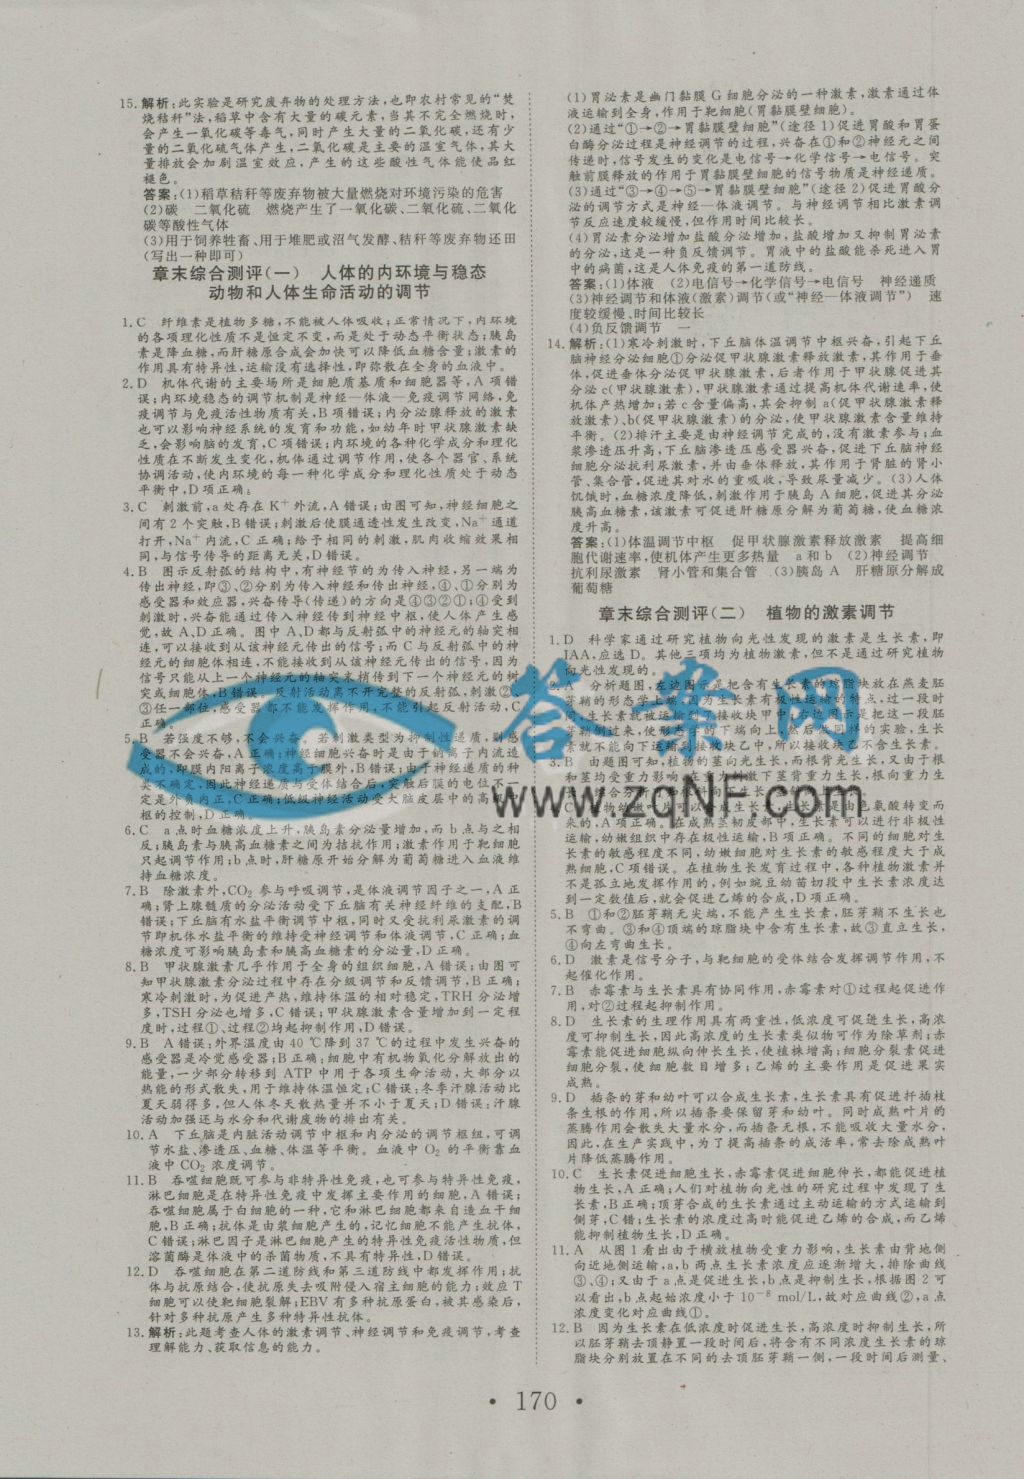 15.解析:此实验是研究废弃物的处理方法,也即农村常见的“焚
烧秸秆”法,稻草中含有大量的碳元素,当其不完全燃烧时,
会产生一氧化碳等毒气,同时产生大量的二氧化碳,还有少
量的二氧化硫气体产生,二氧化碳是主要的温室气体,其大
量排放会加剧温室效应,产生的这些酸性气体能使品红
褪色。
答案:(1)稻草秸秆等废弃物被大量燃烧对环境污染的危害
(2)碳 二氧化硫 燃烧产生了一氧化碳、二氧化硫、二氧化
碳等酸性气体
(3)用于饲养牲畜、用于堆肥或沼气发酵、秸秆等废弃物还田
(写出一种即可)
章末综合测评(一) 人体的内环境与稳态
动物和人体生命活动的调节
1.C 纤维素是植物多糖,不能被人体吸收;正常情况下,内环境
的各项理化性质不是恒定不变,而是处于动态平衡状态;胰岛
素是降血糖,而肝糖原合成会加快可以降低血糖含量;激素的
作用具有特异性,运输没有选择性,即弥散在全身的血液中。
2.D 机体代谢的主要场所是细胞质基质和细胞器等,A 项错
误;内环境稳态的调节机制是神经—体液—免疫调节网络,免
疫调节与免疫活性物质有关,B项错误;内分泌腺释放的激素
也可以影响神经系统的发育和功能,如幼年时甲状腺激素缺
乏,会影响脑的发育,C 项错误;内环境的各种化学成分和理化
性质在不断发生变化,机体通过调节作用,使各个器官、系统
协调活动,使内环境的每一种化学成分和理化性质处于动态
平衡中,D项正确。
3.C 刺激前,a处存在 K⁺外流,A 错误;由图可知,神经细胞之
间有 2 个突触,B错误;刺激后使膜通透性发生改变,Na⁺通道
打开,Na⁺内流,C 正确;给予相同的刺激,肌肉收缩效果相
同,与信号传导的距离无关,D错误。
4.B 图示反射弧的结构中,有神经节的为传入神经,另一端为
传出神经,即③、②分别为传入神经和传出神经,④、①分别为
感受器和效应器,兴奋传导(传递)的方向是④③②①;④受到
刺激时,兴奋能通过传入神经传到神经中枢,使人体产生感
觉,故 A、D正确。图中 A、D都与反射弧中的神经元的轴突相
连,可以接收到从该神经元传出的信号;而 C与反射弧中的神
经元的细胞体相连,不能接收到从该神经元传出的信号,因为
信号只能从上一个神经元的轴突末梢传到下一个神经元的树
突或细胞体,B错误。反射活动离不开完整的反射弧,刺激②、
③任一部位,感受器都不能发挥作用,不能引起反射活动,C
正确。
5.B 若强度不够,不会兴奋。若刺激类型为抑制性递质,则感
受器不会兴奋,A 正确;神经细胞兴奋时是由于钠离子内流造
成的,即膜内阳离子浓度高于膜外,B错误;由于神经递质的种
类不确定,因此神经递质与受体结合后,突触后膜的电位不一
定是外负内正,C正确;低级神经活动受大脑皮层中的高级中
枢的控制,D正确。
6.C a点时血糖浓度上升,胰岛素分泌量增加,而b点与之相
反;胰岛素与胰高血糖素之间为拮抗作用;激素作用于靶细胞
只起调节作用;b点时,肝糖原开始分解为葡萄糖进入血液维
持血糖浓度。
7.B 除激素外,CO₂ 参与呼吸调节,是体液调节因子之一,A 正
确;肾上腺髓质的分泌活动受下丘脑有关神经纤维的支配,B
错误;下丘脑有水盐平衡调节中枢,同时又受抗利尿激素的调
节即机体水盐平衡的维持受神经调节和体液调节,C正确;血
糖浓度可影响胰岛素和胰高血糖素的分泌量,D正确。
8.B 甲状腺激素几乎作用于全身的组织细胞,A 错误;由图可
知甲状腺激素分泌过程中存在分级调节和反馈调节,B正确;
寒冷刺激时,为促进产热,维持体温的相对稳定,TRH 分泌增
多,TSH分泌也增多,C错误;甲状腺激素含量增加到一定程
度时,过程①、过程②均起抑制作用,D错误。
9.B A错误:外界温度由 40 ℃降到 37 ℃的过程中发生兴奋的
感受器是冷觉感受器;B正确:细胞中有机物氧化分解放出的
能量,一少部分转移到 ATP 中用于各项生命活动,大部分以
热能的形式散失,用于维持体温恒定;C错误:冬季汗腺活动比
夏天弱得多,但人体冬天散热量并不小于夏天;D错误:汗腺
活动加强还与水分和代谢废物的排出有关。
10.A 下丘脑是内脏活动调节中枢和内分泌的调节枢纽,可调
节水盐、渗透压、血糖、体温等平衡。血液中 O₂ 的平衡靠血
液中 CO₂ 浓度调节。
11.B 吞噬细胞既可参与非特异性免疫,也可参与特异性免疫,
淋巴细胞是在特异性免疫中发挥主要作用的细胞,A错误;
吞噬细胞属于白细胞的一种,它和淋巴细胞都来自造血干细
胞,B正确;抗体是由浆细胞产生的,记忆细胞不能产生抗体,
C错误;淋巴因子是淋巴细胞产生的特异性免疫活性物质,但
溶菌酶是体液中的杀菌物质,不具有特异性,D错误。
12.D 吞噬细胞在第二道防线和第三道防线中都发挥作用;抗
体与抗原结合,使抗原失去吸附侵入宿主细胞的能力;效应 T
细胞可以使靶细胞裂解;EBV有多种抗原蛋白,被其感染后,
针对多种抗原产生多种特异性抗体。
13.解析:此题考查人体的激素调节、神经调节和免疫调节,考查
理解能力、获取信息的能力。
(1)胃泌素是幽门黏膜 G 细胞分泌的一种激素,激素通过体
液运输到全身,作用于靶细胞(胃黏膜壁细胞)。
(2)通过“①→②→胃黏膜壁细胞”(途径 1)促进胃酸和胃蛋
白酶分泌过程是神经调节的过程,兴奋在①和②神经元之间
传递时,信号发生的变化是电信号→化学信号→电信号。突
触前膜释放的作用于胃黏膜壁细胞的信号物质是神经递质。
(3)通过“③→④→⑤→胃黏膜壁细胞”(途径 2)促进胃酸分
泌的调节方式是神经—体液调节。与神经调节相比激素调
节反应速度较缓慢,但作用时间比较长。
(4)胃泌素分泌增加盐酸分泌增加,盐酸增加又抑制胃泌素
的分泌,这是一种负反馈调节。胃液中的盐酸能杀死进入胃
中的病菌,这是人体免疫的第一道防线。
答案:(1)体液 (2)电信号→化学信号→电信号 神经递质
(3)神经调节和体液(激素)调节(或“神经—体液调节”) 速
度较缓慢、时间比较长
(4)负反馈调节 一
14.解析:(1)寒冷刺激时,下丘脑体温调节中枢兴奋,引起下丘
脑神经分泌细胞①分泌促甲状腺激素释放激素,其作用于垂
体,促进垂体分泌促甲状腺激素,后者作用于甲状腺促进其
分泌 c(甲状腺激素),甲状腺激素通过提高机体代谢速率,使
机体产热增加;若 c含量偏高,其会抑制 a(促甲状腺激素释
放激素)、b(促甲状腺激素)的分泌,使甲状腺激素含量维持
平衡。(2)排汗主要是由神经调节完成的,没有激素参与;血
浆渗透压升高,下丘脑渗透压感受器兴奋,促进下丘脑神经
细胞分泌抗利尿激素,并由垂体释放,其作用于肾脏的肾小
管、集合管,促进其对水的重吸收,导致尿量减少。(3)人体
饥饿时,血糖浓度降低,刺激作用于胰岛 A 细胞,促进其分泌
胰高血糖素,该激素可促进肝糖原分解为葡萄糖,使血糖浓
度升高。
答案:(1)体温调节中枢 促甲状腺激素释放激素 提高细
胞代谢速率,使机体产生更多热量 a和 b (2)神经调节
抗利尿激素 肾小管和集合管 (3)胰岛 A 肝糖原分解成
葡萄糖
章末综合测评(二) 植物的激素调节
1.D 科学家通过研究植物向光性发现的激素是生长素,即
IAA,应选 D。其他三项均为植物激素,但不是通过研究植物
向光性发现的。
2.A 分析题图,左边图示是把含有生长素的琼脂块放在燕麦胚
芽鞘的形态学上端,因为生长素有极性运输的特点,过一段时
间,生长素就被运输到了接收块甲中;右边图示是把这一段胚
芽鞘倒过来,使形态学的下端向上,然后做同样的实验,生长
素就不能向下运输到接收块乙中,所以接收块乙不含生长素。
3.B 由题图可知,植物的茎向光生长,而根背光生长,又由于根
和茎均受重力影响,在重力刺激下茎背重力生长,根向重力生
C 植物幼嫩叶片可以合成生长素,生长素是由色氨酸转变而
来的,A项正确。在成熟茎韧皮部中,生长素可以进行非极性
运输,幼嫩组织中存在极性运输,B项正确。不同的细胞对生
长素的敏感程度不同,幼嫩细胞对生长素的敏感程度大于成
熟细胞,C项错误。在植物生长发育过程中,各种植物激素并
不是孤立地发挥作用的,例如豌豆幼苗切段中生长素浓度达
到一定数值后,就会促进乙烯的合成,D项正确。
5.B ①和②胚芽鞘无尖端,不能产生生长素,胚芽鞘不生长也
不弯曲。③和④顶端的琼脂块中含有生长素,故③直立生长,
④向左弯曲生长。
6.D 激素是信号分子,与靶细胞的受体结合发挥调节作用,不
起催化作用。
7.B 赤霉素与生长素具有协同作用,赤霉素对①过程起促进作
用,对②过程起抑制作用。
8.D 生长素的生理作用具有两重性,低浓度可促进生长,高浓
度可抑制生长,因此高浓度的生长素类似物可作为除草剂;赤
霉素能促进细胞纵向伸长生长,使植株增高;细胞分裂素促进
细胞分裂,使细胞数目增多;乙烯的主要作用是促进果实
成熟。
9.D 插条的芽和幼叶可以合成生长素,生长素具有促进扦插枝
条生根的作用,所以插条要保留芽和幼叶。同时成熟叶片的
蒸腾作用会散失大量水分,而插条无根,不能吸收大量水分,
因此,在生产实践中,为了提高插条的成活率,常去除成熟叶
片降低蒸腾作用。
10.C 生长素促进细胞生长,赤霉素促进细胞伸长,都能促进植
物生长,A正确;人们对植物向光性的研究过程中发现了生
长素,B正确;顶芽合成的生长素通过主动运输的方式运输到
侧芽,C错;生长素的浓度过高时能促进乙烯的合成,而乙烯
能抑制植物生长,D正确。
11.A 从图1看出由于横放植物受重力影响,生长素由背地侧
向近地侧运输,a,b两点生长素浓度应逐渐增大,排除曲线
③、④;又由于 a 点是促进生长,b点是抑制生长,根据图 2 可
以看出,b点起始浓度小于 10⁻⁸ mol/L,故对应曲线②,a点
浓度变化对应曲线①。
12.B 因为生长素在低浓度时促进生长,高浓度时抑制生长,所
以胚芽鞘去顶静置一段时间后,将含有不同浓度生长素的琼
脂块分别放置在不同的去顶胚芽鞘一侧,一段时间后测量、
答案网
www.zqNF.com
• 170 •